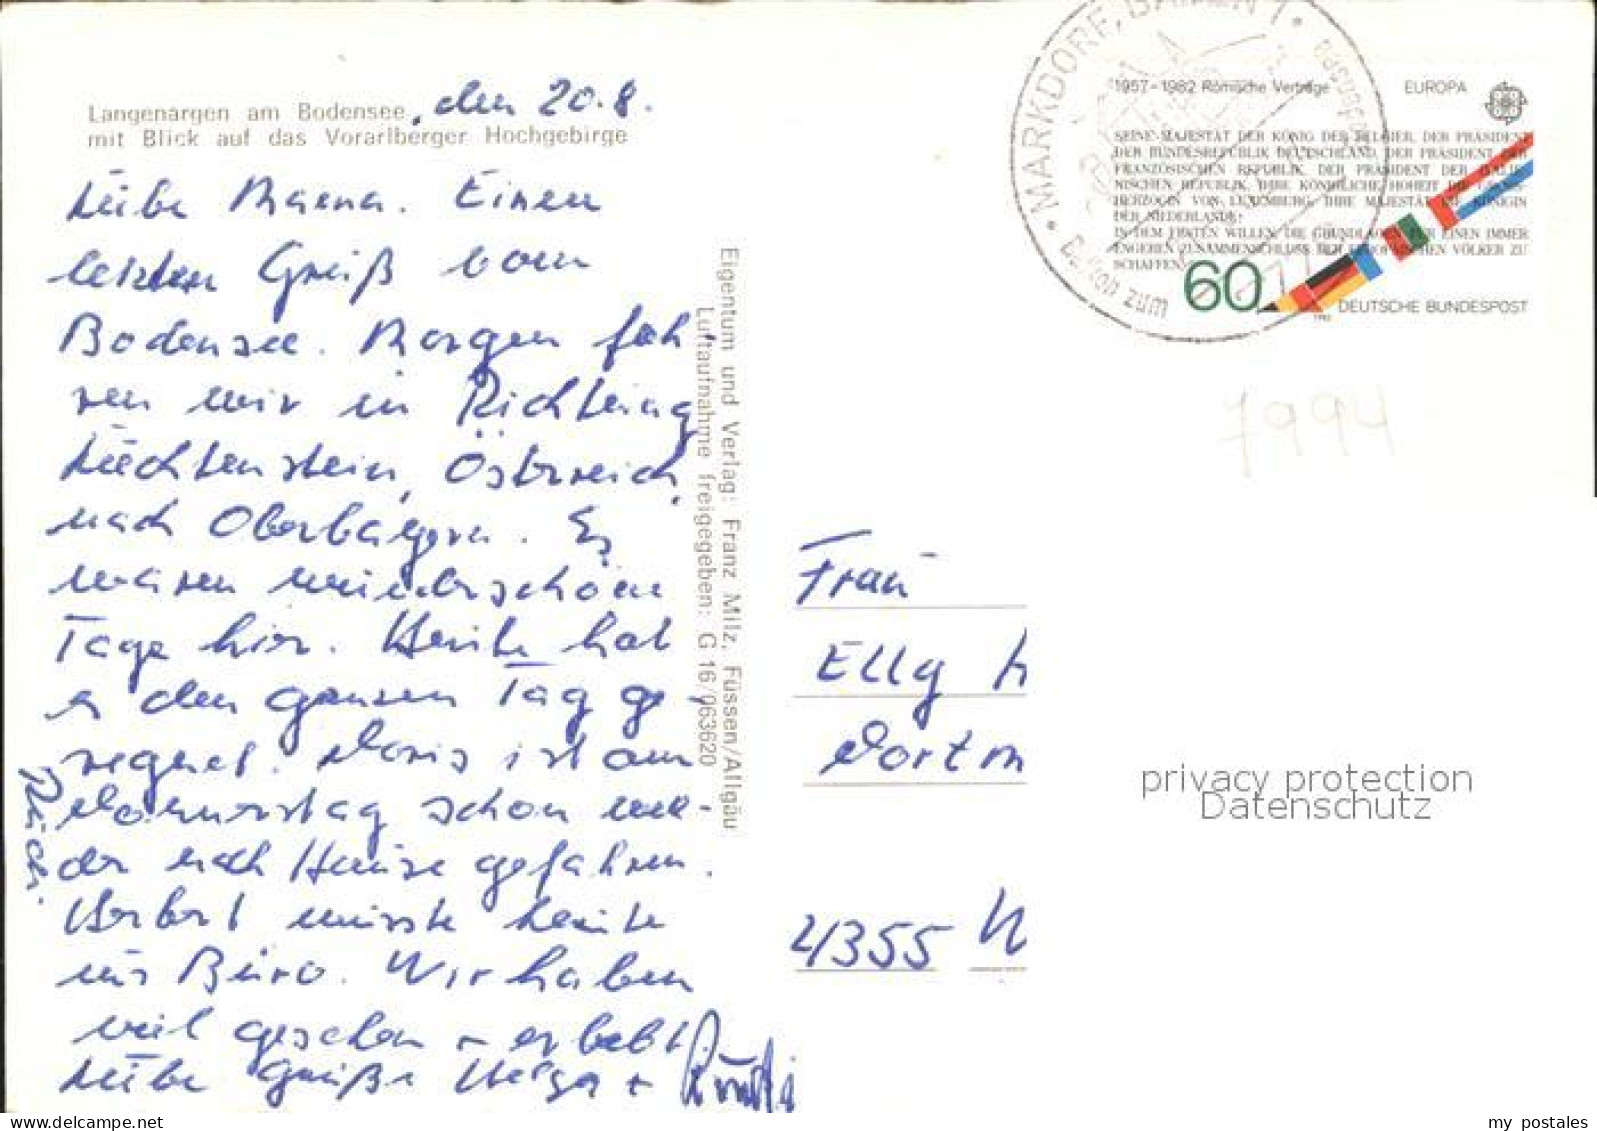 Langenargen am Bodensee, den 20.8.
mit Blick auf das Vorarlberger Hochgebirge
Liebe Mama. Einen
letzten Gruß vom
Bodensee. Morgen fah
ren wir in Richtung
Liechtenstein, Österreich,
nach Oberbayern. Es
waren wunderschöne
Tage hier. Heute hat
es den ganzen Tag ge
regnet. Doris ist am
Donnerstag schon wie-
der nach Hause gefahren.
Herbert musste heute
ins Büro. Wir haben
viel gesehen + erlebt.
Liebe Grüße Helga +
Eigentum und Verlag: Franz Milz, Füssen/Allgäu
Luftaufnahme freigegeben: G 16/063620
MARKDORF, BADEN 1
1957-1982 Römische Verträge EUROPA
SEINE MAJESTÄT DER KÖNIG DER BELGIER, DER PRÄSIDENT
DER BUNDESREPUBLIK DEUTSCHLAND, DER PRÄSIDENT DER
FRANZÖSISCHEN REPUBLIK, DER PRÄSIDENT DER ITALIE-
NISCHEN REPUBLIK, IHRE KÖNIGLICHE HOHEIT DIE GROSS-
HERZOGIN VON LUXEMBURG, IHRE MAJESTÄT DIE KÖNIGIN
DER NIEDERLANDE:
IN DEM FESTEN WILLEN, DIE GRUNDLAGEN FÜR EINEN IMMER
ENGEREN ZUSAMMENSCHLUSS DER EUROPÄISCHEN VÖLKER ZU
SCHAFFEN
60
1982
DEUTSCHE BUNDESPOST
7994
Frau
Elly
Dortm
4355 W
privacy protection
Datenschutz
my postales